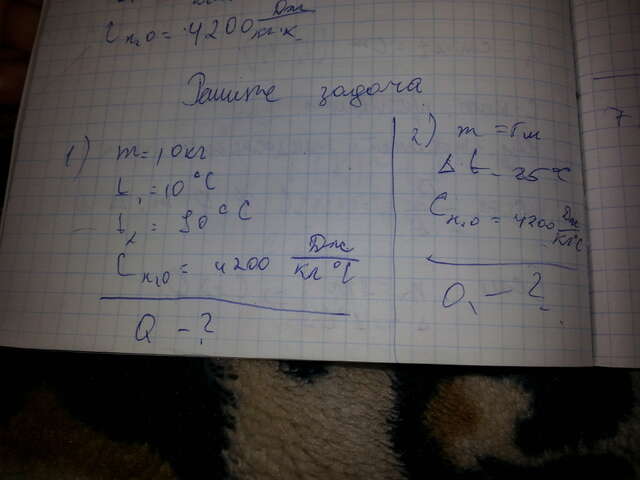 C н₂о = 4200 Дж/кг·К
Решите задача
1) m = 10 кг
t₁ = 10°C
t₂ = 90°C
C н₂о = 4200 Дж/кг°C
Q - ?
2) m =
Δt - 25°C
C н₂о = 4200 Дж/кг°C
Q - ?
7